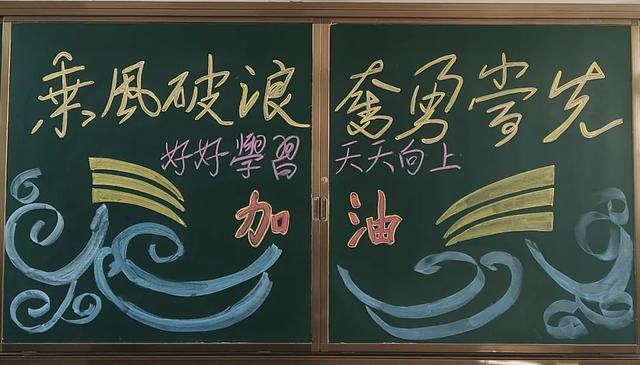 乘風破浪 奮勇當先
好好學習 天天向上
加 油